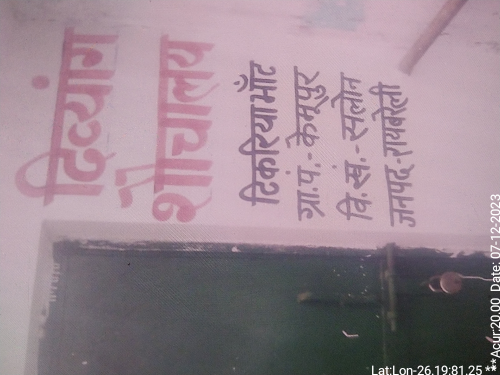 दिव्यांग
शौचालय
टिकरिया भाँट
ग्रा.पं.- केमूपुर
वि.खं.- सलोन
जनपद-रायबरेली
Lat:Lon-26.19:81.25
**Acur:20.00 Date: 07-12-2023